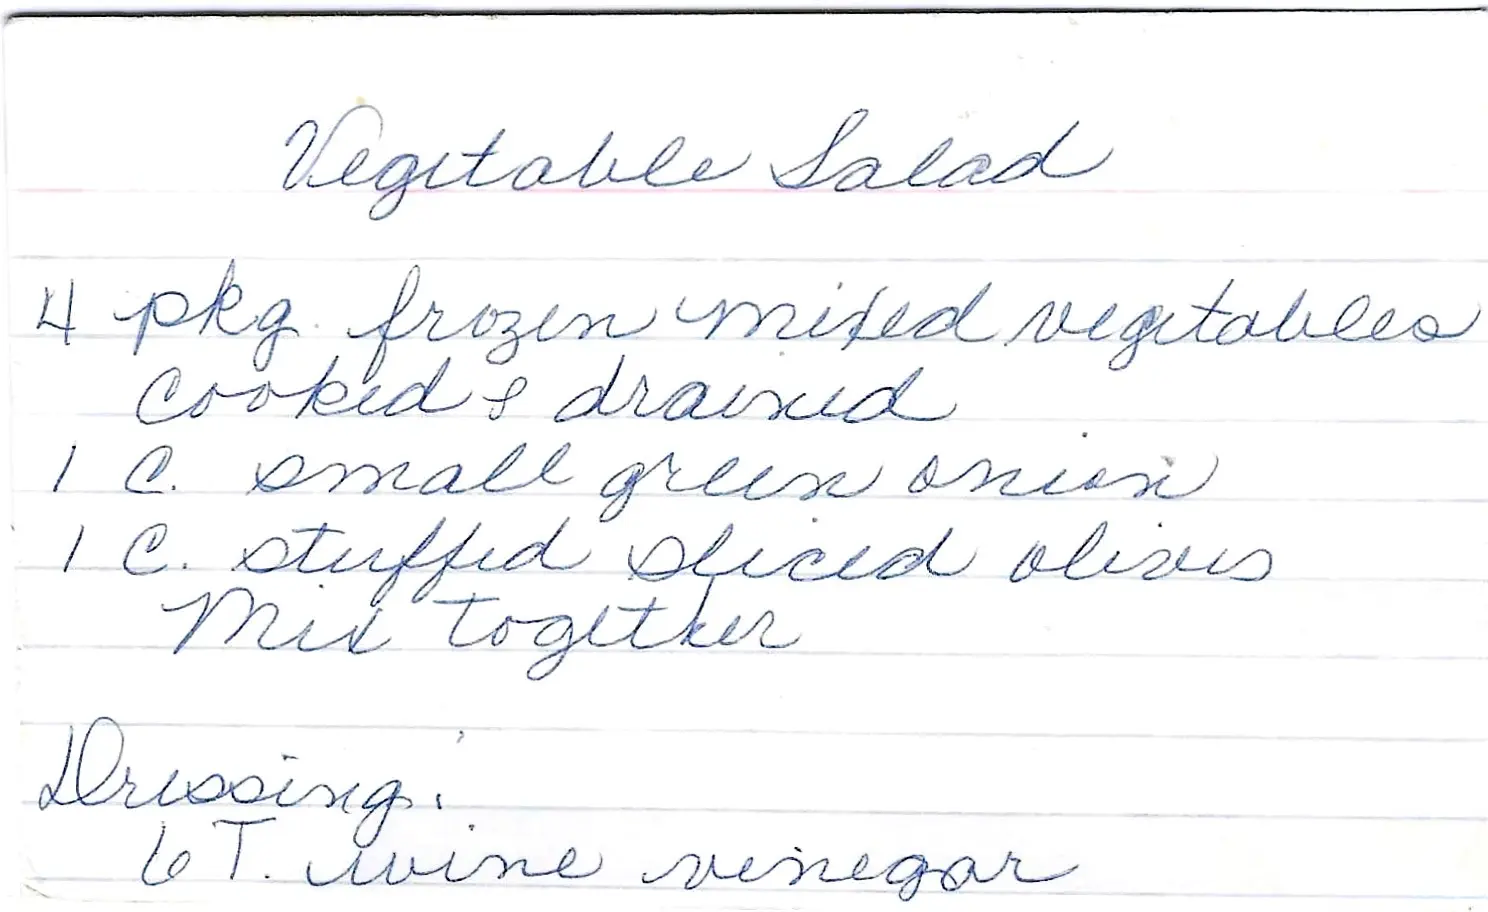 Vegetable Salad
4 pkg. frozen mixed vegetables
cooked & drained
1 C. small green onion
1 C. stuffed sliced olives
Mix together
Dressing:
6 T. wine vinegar